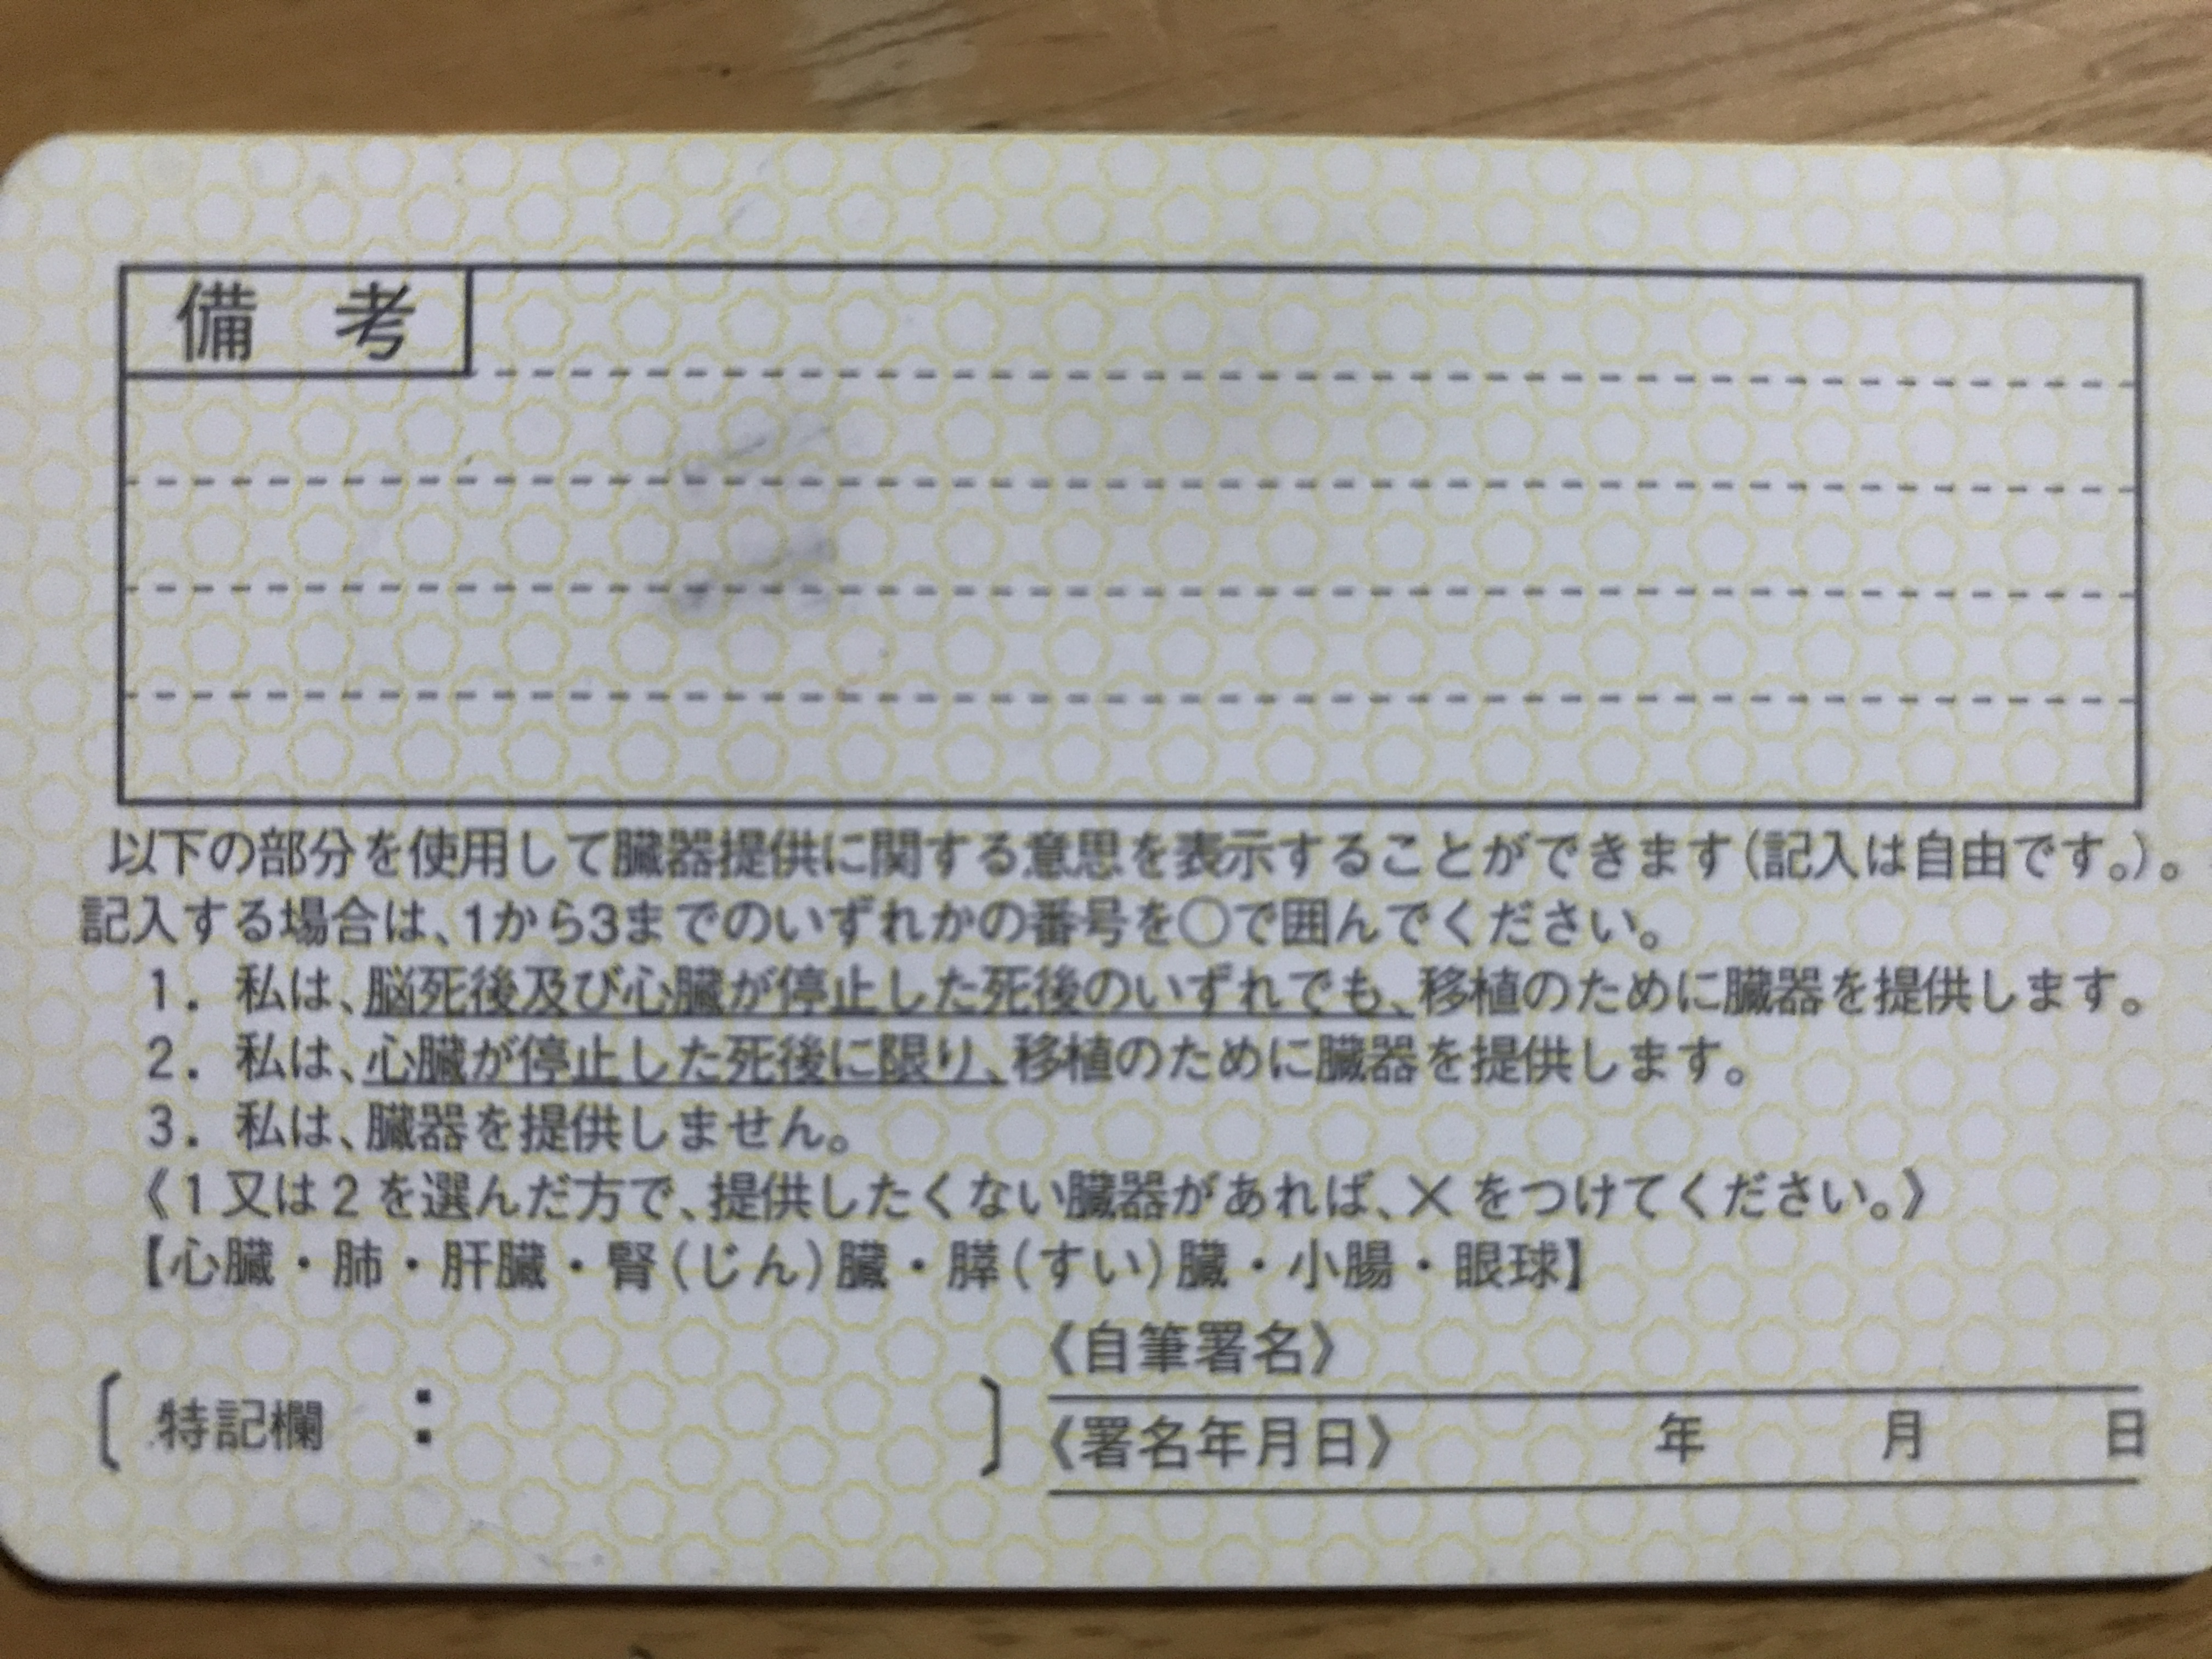 備考
以下の部分を使用して臓器提供に関する意思を表示することができます(記入は自由です。)。
記入する場合は、1から3までのいずれかの番号を○で囲んでください。
1. 私は、脳死後及び心臓が停止した死後のいずれでも、移植のために臓器を提供します。
2. 私は、心臓が停止した死後に限り、移植のために臓器を提供します。
3. 私は、臓器を提供しません。
《1又は2を選んだ方で、提供したくない臓器があれば、×をつけてください。》
【心臓・肺・肝臓・腎(じん)臓・膵(すい)臓・小腸・眼球】
《自筆署名》
〔特記欄 : 〕
《署名年月日》 年 月 日